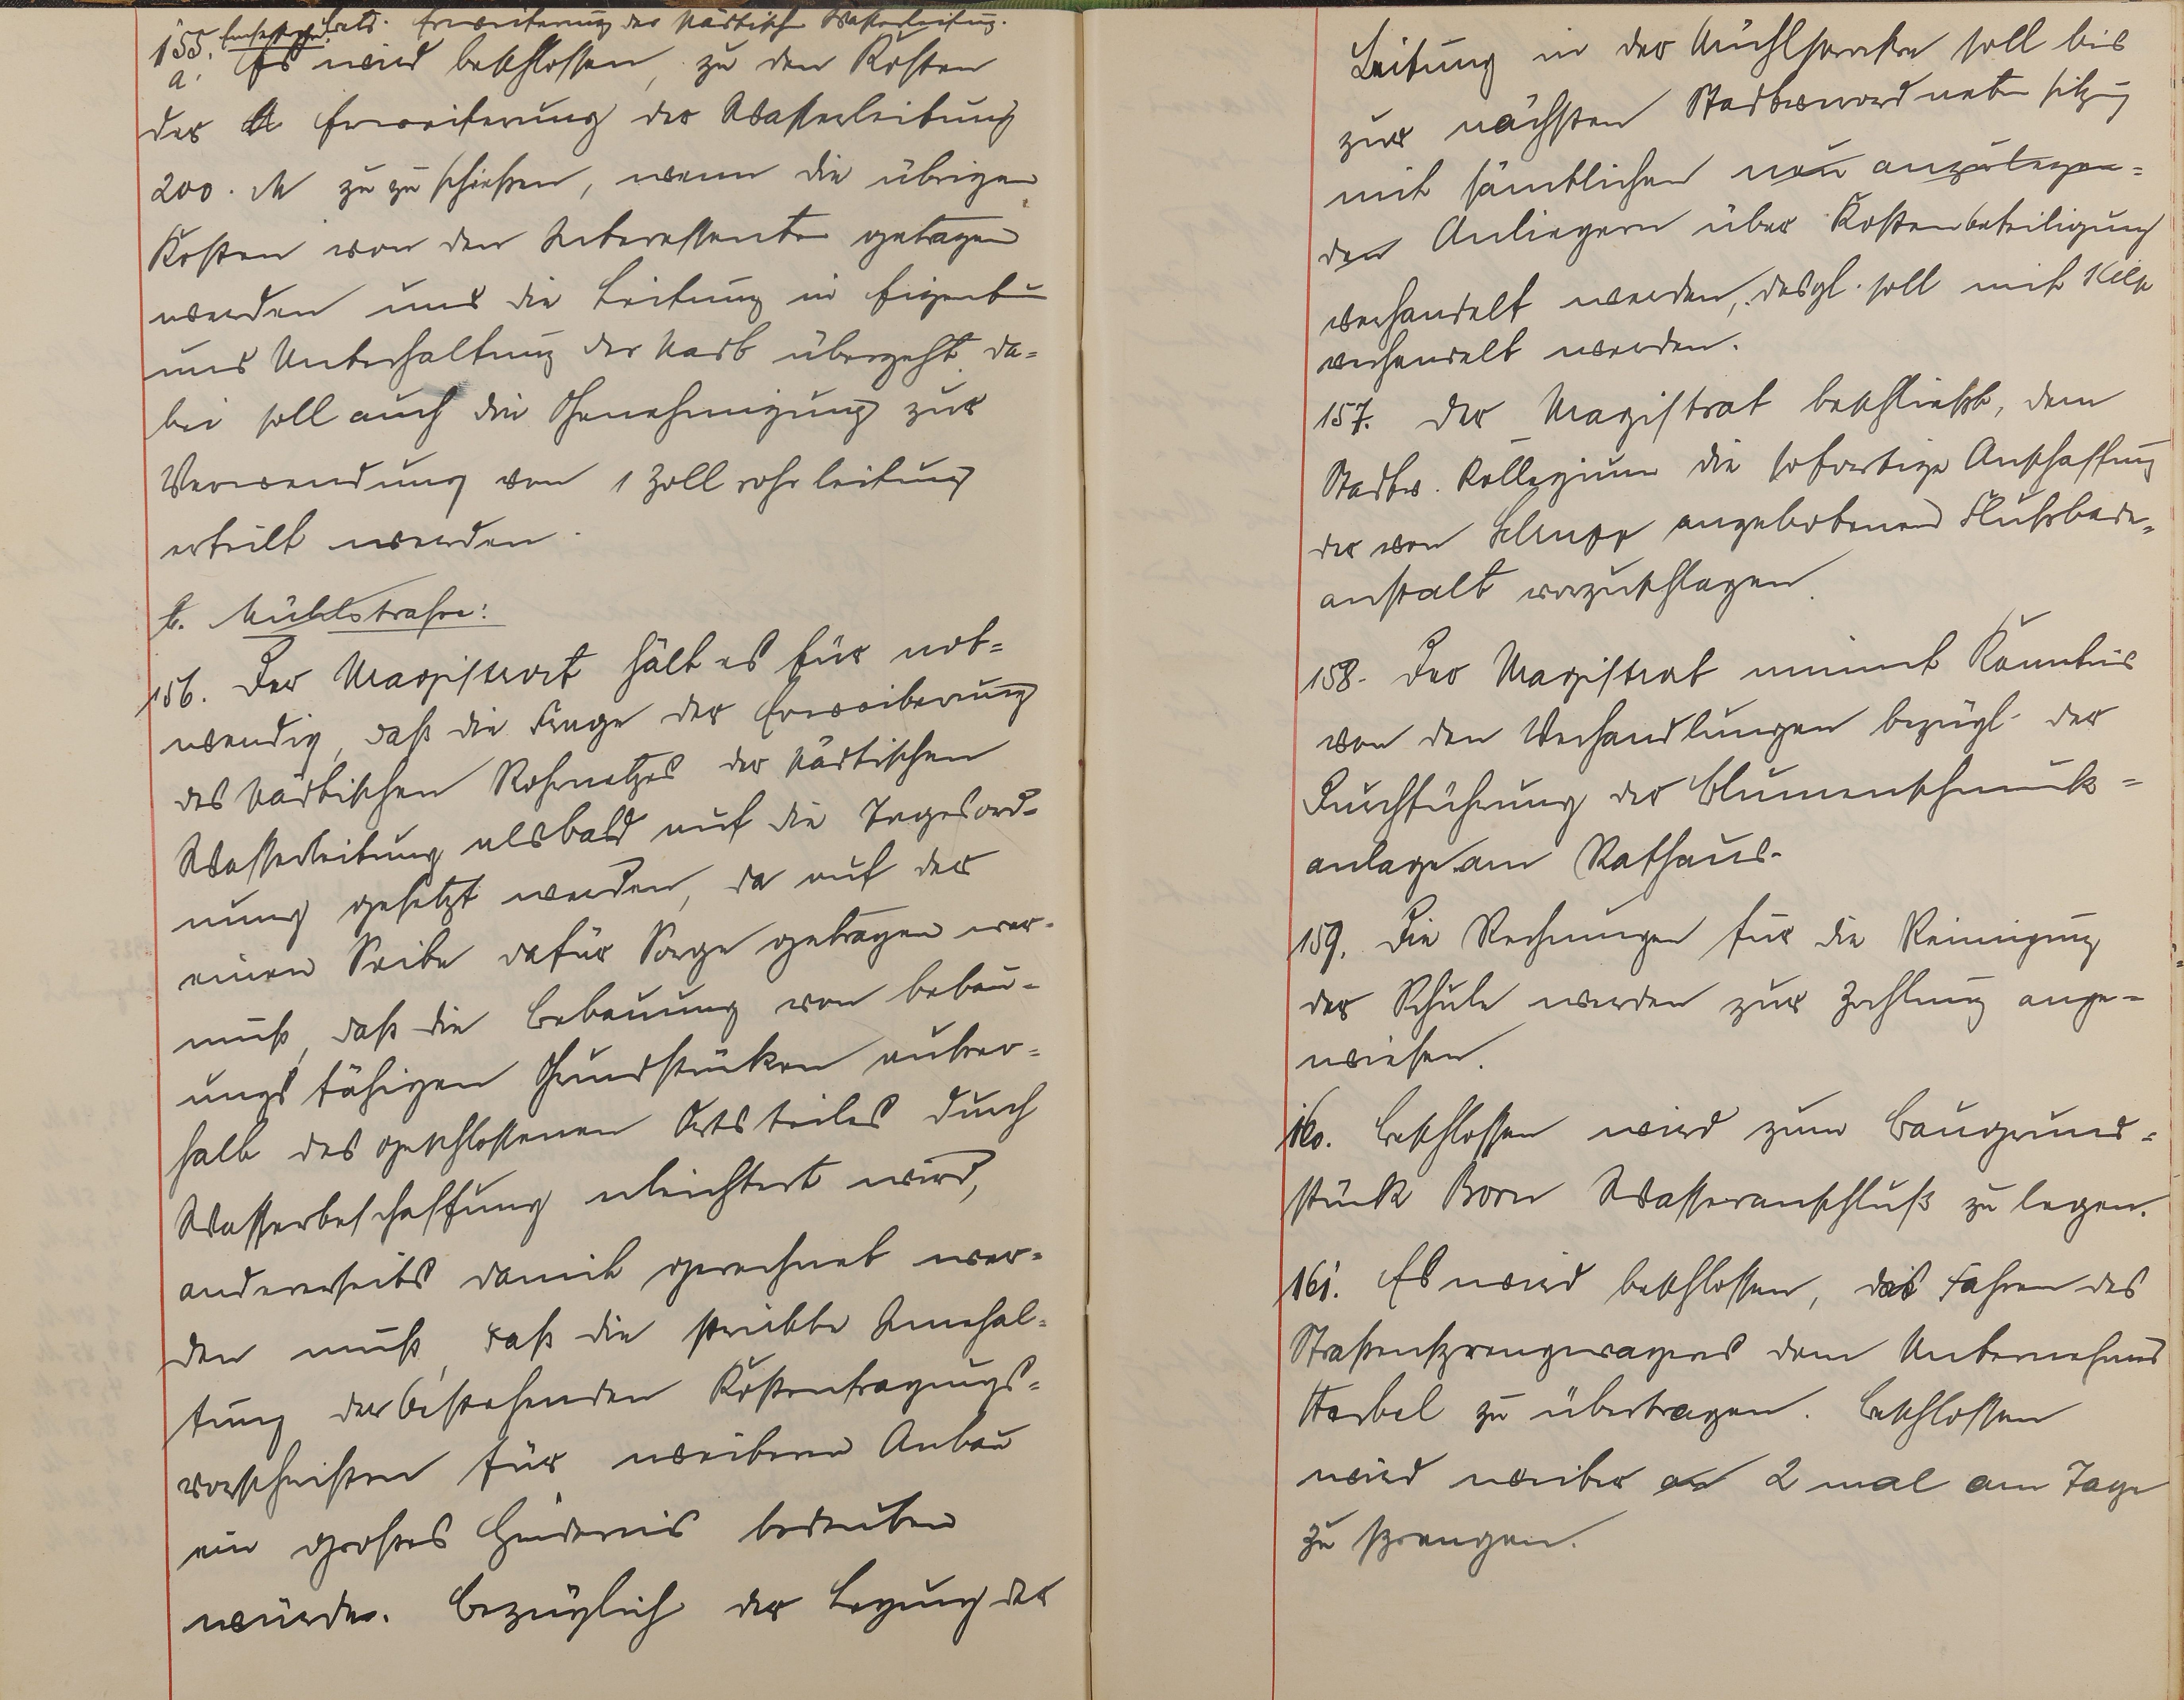 155. betr. Erweiterung der städtisch Wasserleitung.
a. Es wird beschlossen, zu den Kosten
der Erweiterung der Wasserleitung
200. M zu zu schießen, wenn die übrigen
Kosten von den Interessenten getragen
werden und die Leitung in Eigentu
und Unterhaltung der Stadt übergeht, da=
bei soll auch die Genehmigung zur
Verwendung von 1 Zoll rohr leitung
erteilt werden.
b. Mühlstraße:
156. Der Magistrat hält es für not=
wendig, daß die Frage der Erweiterung
des städtischen Rohrnetzes der städtischen
Wasserleitung alsbald auf die Tagesord=
nung gesetzt werden, da auf der
einen Seite dafür Sorge getragen wer=
muß, daß die Bebauung von bebau=
ungs fähigen Grundstücken außer=
halb des geschlossenen Ortsteiles durch
Wasserbeschaffung erleichtert wird,
andererseits damit gerechnet wer=
den muß, daß die strickte Innehal=
tung der bestehenden Kostentragungs=
vorschriften für weiteren Anbau
ein großes Hindernis bedeuten
würde. Bezüglich der Legung der
Leitung in der Mühlstraße soll bis
zur nächsten Stadtverordneten sitzung
mit sämtlichen neu anzulegen=
den Anliegern über Kostenbeteiligung
verhandelt werden, desgl. soll mit Kilp
verhandelt werden.
157. Der Magistrat beschließt, dem
Stadtv. Kollegium die sofortige Anschaffung
der von Schupp angebotenen Flußbade=
anstalt vorzuschlagen.
158. Der Magistrat nimmt Kenntnis
von den Verhandlungen bezügl. der
Durchführung der Blumenschmuck=
anlage am Rathaus.
159. Die Rechnungen für die Reinigung
der Schule werden zur Zahlung ange=
wiesen.
160. Beschlossen wird zum Baugrund=
stück Born Wasseranschluß zu legen.
161. Es wird beschlossen, das Fahren des
Straßensprengwagens dem Unternehmer
Herbel zu übertragen. Beschlossen
wird weiter 2 mal am Tage
zu sprengen.